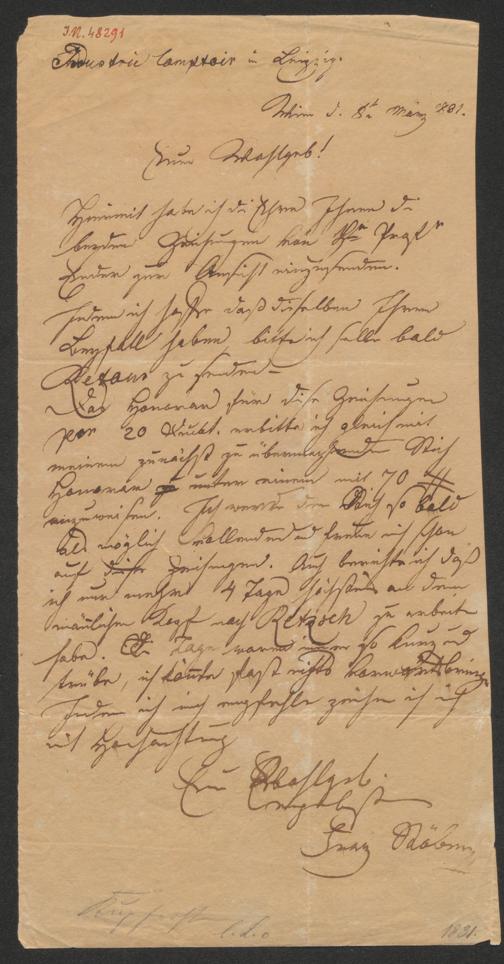 I.N. 48291
Industrie Comptoir in Leipzig.
Wien d. 8t März 831.
Euer Wohlgeb!
Hiermit habe ich die Ehre Ihnen die
beyden Zeichungen von Hrn Profr
Ender zur Ansicht einzusenden.
Indem ich hoffe daß dieselben Ihren
Beyfall haben, bitte ich selbe bald
Retour zu senden –
Das Honorar für diese Zeichungen
per 20 erbitte ich gleich mit
meinem zunächst zu übermachenden Stich
Honorar unter einem mit 70
anzuweisen. Ich werde den Stich so bald
als möglich vollenden und freue mich schon
auf diese Zeichungen. Auch berichte ich daß
ich nur mehr 4 Tage höchstens an dem
männlichen Kopf nach Retzsch zu arbeiten
habe. Die Tage waren immer so kurz und
trübe, ich konnte fast nichts vorwärtsbringen
Indem ich mich empfehle zeichne ich mich
mit Hochachtung
Eur Wohlgeb.
ergebenster
Franz Stöber
1831.